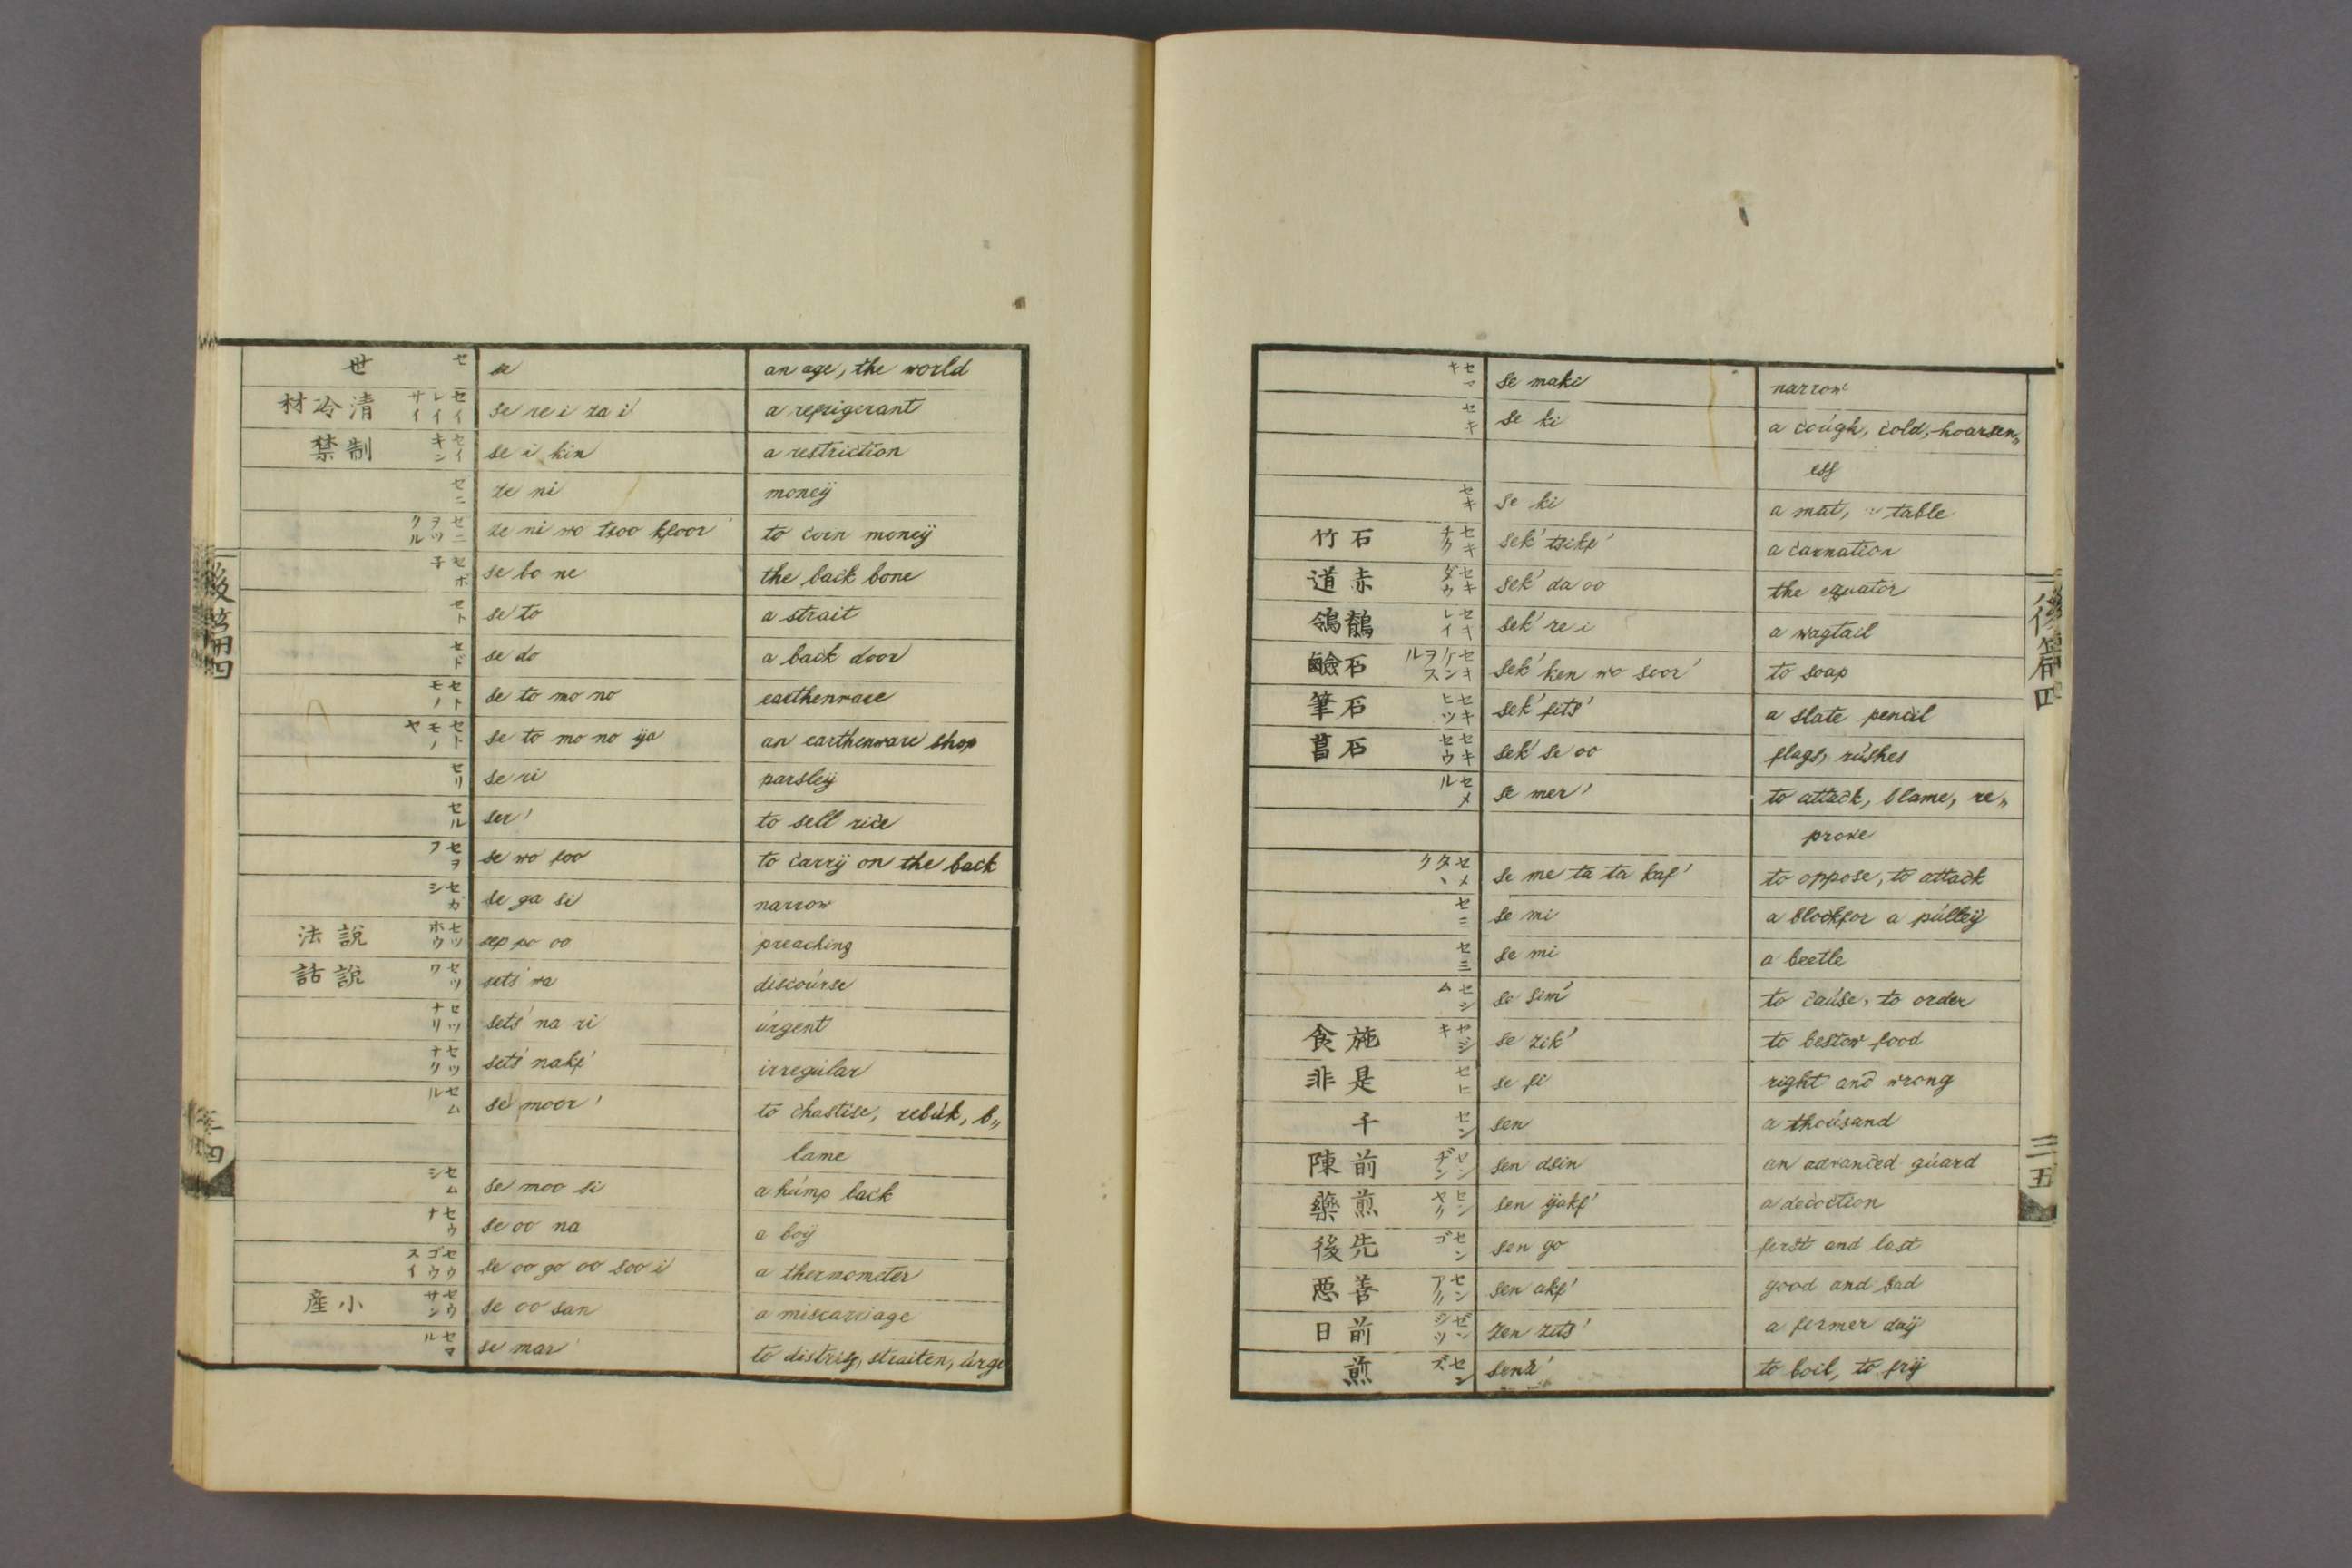 世 セ se an age, the world
材冷清 セイレイサイ se re i za i a refrigerant
禁制 セイキン se i kin a restriction
セニ ze ni moneÿ
セニヲツクル ze ni wo tsoo kfoor' to coin moneÿ
セボ子 se bo ne the back bone
セト se to a strait
セド se do a back door
セトモノ se to mo no earthenware
セトモノヤ se to mo no ÿa an earthenware shop
セリ se ri parsleÿ
セル ser' to sell rice
セヲフ se wo foo to carrÿ on the back
セガシ se ga si narrow
法說 セツホウ sep po oo preaching
話說 セツワ sets' wa discoúrse
セツナリ sets' na ri úrgent
セツナク sets' nakf' irregúlar
セムル se moor' to chastise, rebúk, b,,
lame
セムシ se moo si a húmp back
セウナ se oo na a boÿ
セウゴウスイ se oo go oo soo i a thermometer
産小 セウサン se oo san a miscarriage
セマル se mar' to distriss, straiten, úrge
後篇四
三四
セマキ se maki narrow
セキ se ki a coúgh, cold, hoarsen,,
ess
セキ se ki a mat, a table
竹石 セキチク sek' tsikf' a carnation
道赤 セキダウ sek' da oo the equator
鴒鶺 セキレイ sek' re i a wagtail
鹼石 セキケンヲスル sek' ken wo soor' to soap
筆石 セキヒツ sek' fits' a slate pencil
菖石 セキセウ sek' se oo flags, rúshes
セメル se mer' to attack, blame, re,,
prove
セメタヽク se me ta ta kaf' to oppose, to attack
セミ se mi a block for a púlleÿ
セミ se mi a beetle
セシム se sim' to caúse, to order
食施 セジキ se zik' to bestow food
非是 セヒ se fi right and wrong
千 セン sen a thoúsand
陳前 センヂン sen dsin an advanced gúard
藥煎 センヤク sen ÿakf' a decoction
後先 センゴ sen go first and last
悪善 センアク sen akf' good and bad
日前 ゼンジツ zen zits' a former daÿ
煎 センズ senz' to boil, to frÿ
後篇四
三五